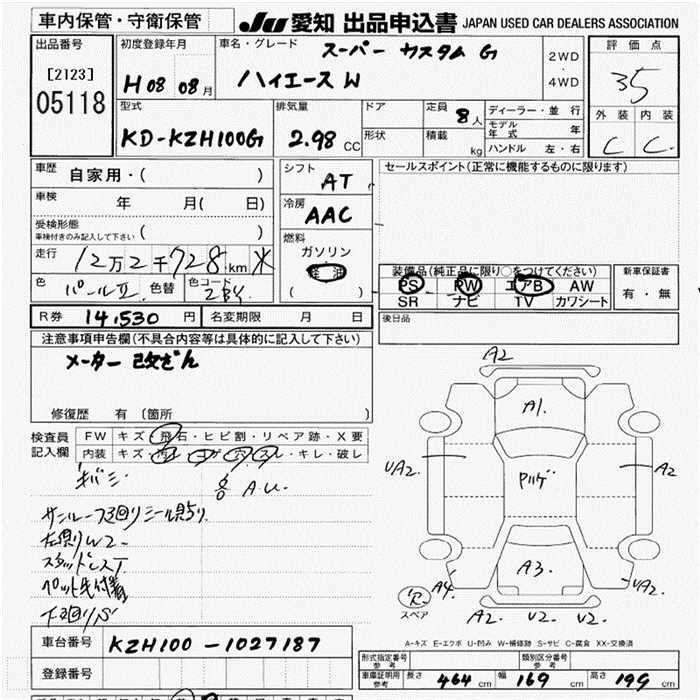 車内保管・守衛保管
JU 愛知 出品申込書 JAPAN USED CAR DEALERS ASSOCIATION
出品番号
[2123]
05118
初度登録年月
H08 08月
車名・グレード
スーパー カスタム G
ハイエース W
2WD
・
4WD
評価点
3.5
外装 内装
C C
型式
KD-KZH100G
排気量
2.98 CC
ドア
形状
定員 8人
積載 kg
ディーラー・並行
モデル年式 年
ハンドル 左・右
車歴 自家用・( )
車検 年 月( 日)
受検形態
車検付きのみ記入して下さい ( )
走行 12万2千728km ✕
色 パールⅡ 色替 色コード 2BY
シフト
AT
冷房
AAC
燃料
ガソリン
軽油
( )
セールスポイント(正常に機能するものに限ります)
装備品(純正品に限り○をつけてください)
PS PW エアB AW
SR ナビ TV カワシート
新車保証書
有・無
R券 14,530 円 名変期限 月 日
後日品
注意事項申告欄(不具合内容等は具体的に記入して下さい)
メーター 改ざん
修復歴 有 〔箇所 〕
検査員
記入欄
FW キズ・飛石・ヒビ割・リペア跡・X要
内装 キズ・汚レ・コゲ・穴・スレ・キレ・破レ
A.U.
サンルーフ廻りシール貼り
左側りW2
スタッドレスT
下廻りS
A2
A1
UA2
A2
ハゲ
A3
A4
UA2
R
スペア
A2
U2
U2
A-キズ E-エクボ U-凹み W-補修跡 S-サビ C-腐食 XX-交換済
車台番号 KZH100-1027187
登録番号
形式指定番号
参考
類別区分番号
参考
車庫証明用
参考
長さ 464 cm 幅 169 cm 高さ 199 cm